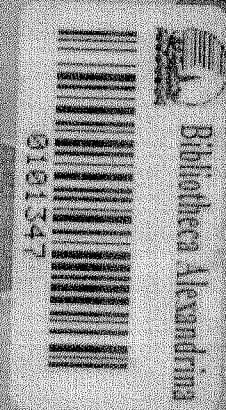 Bibliotheca Alexandrina
0101347